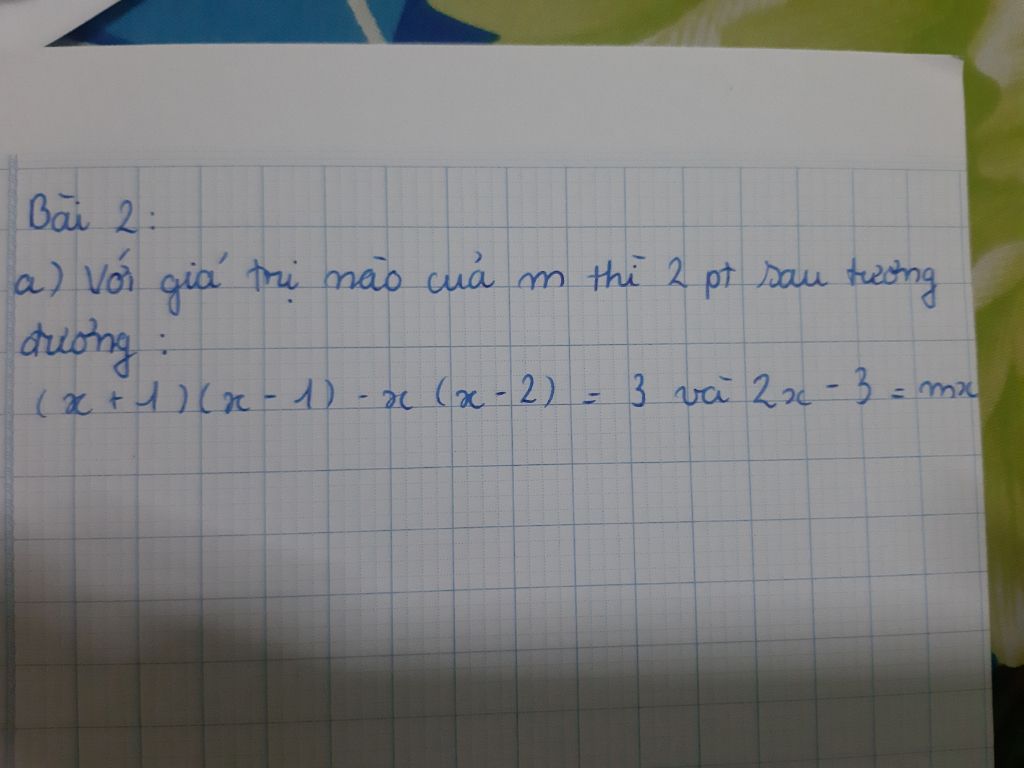 Bài 2:
a) Với giá trị nào của m thì 2 pt sau tương
đương :
(x + 1)(x - 1) - x (x - 2) = 3 và 2x - 3 = mx